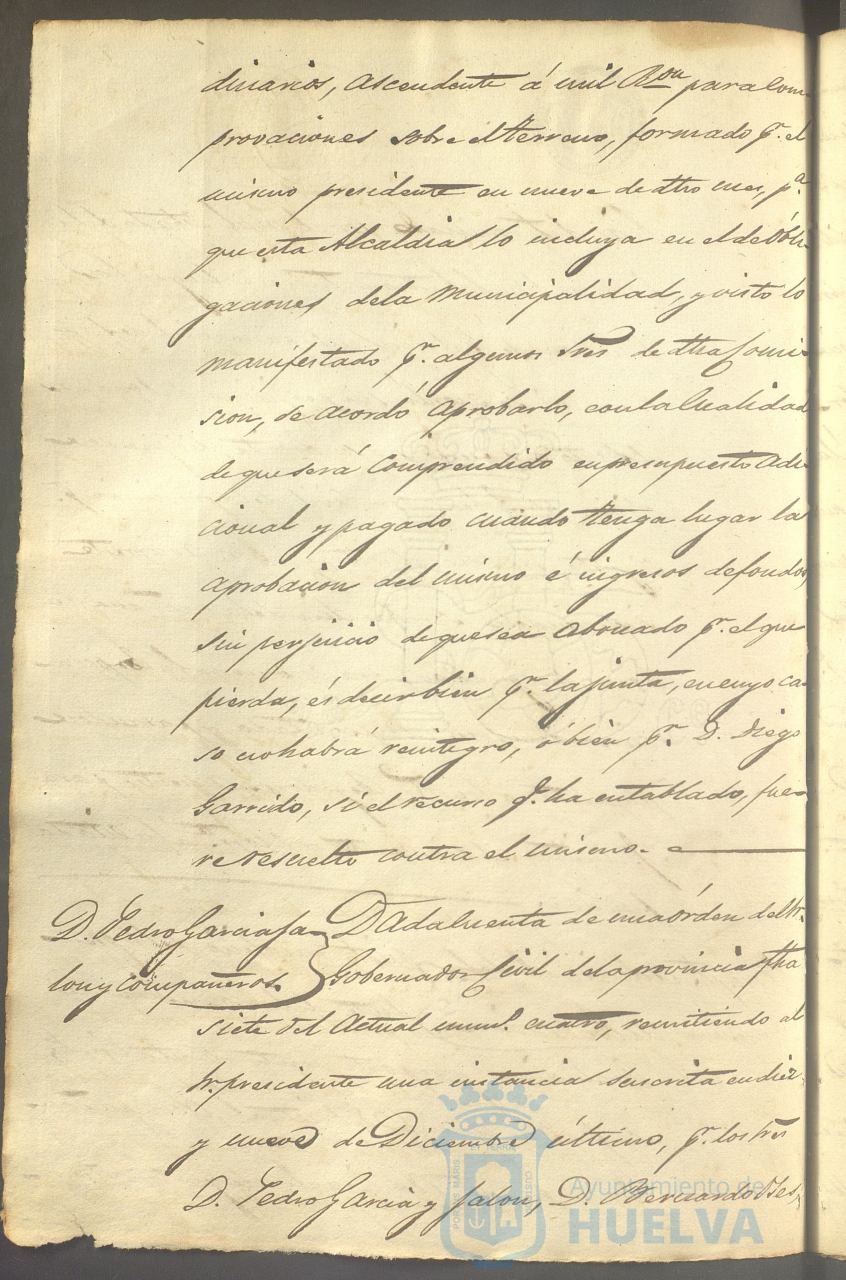 dinarios, ascendente á mil Ron para com-
provaciones sobre el terreno, formado pr. el
mismo presidente en nueve de dho mes, pa.
que esta Alcaldia lo incluya en el de Obli-
gaciones dela Municipalidad, y visto lo
manifestado pr. algunos Sres de dha Comi-
sion, se acordó aprobarlo, con la Cualidad
de que será Comprendido en presupuesto Adi-
cional y pagado cuando tenga lugar la
aprobacion del mismo é ingresos de fondos,
sin perjuicio de que sea abonado pr. el que
pierda, és decir bien pr. la junta, en cuyo ca-
so no habrá reintegro, ó bien pr. D. Diego
Garrido, si el recurso q. ha entablado, fue-
re resuelto contra el mismo.
D. Pedro Garcia Ja-
lon y Compañeros.
Dada Cuenta de una órden del Sr.
Gobernador Civil de la provincia fha
siete del Actual num. cuatro, remitiendo al
Sr. presidente una instancia suscrita en diez
y nueve de Diciembre último, pr. los Sres
D. Pedro Garcia y Jalon, D. Bernardo
Ayuntamiento de
HUELVA